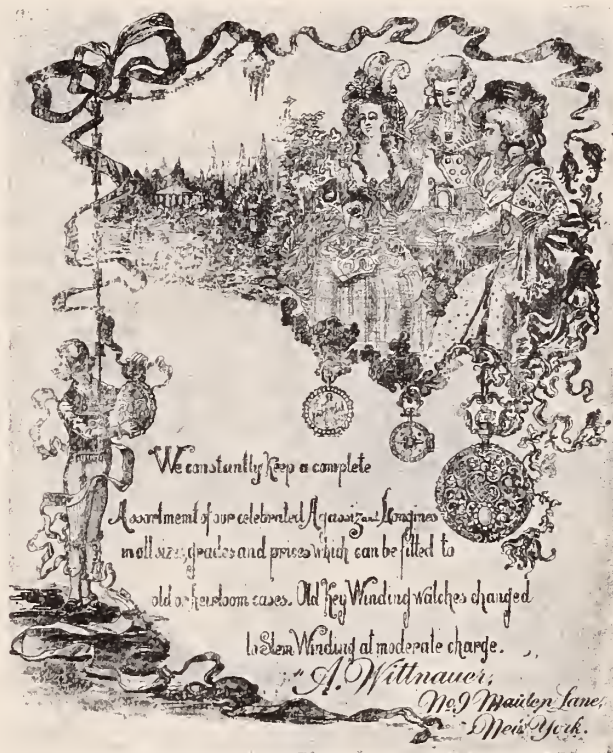 We constantly Keep a complete
Assortment of our celebrated Agassiz and Longines
in all sizes, grades and prices which can be fitted to
old or heirloom cases. Old Key Winding watches changed
to Stem Winding at moderate charge.
A. Wittnauer,
No. 9 Maiden Lane,
New York.